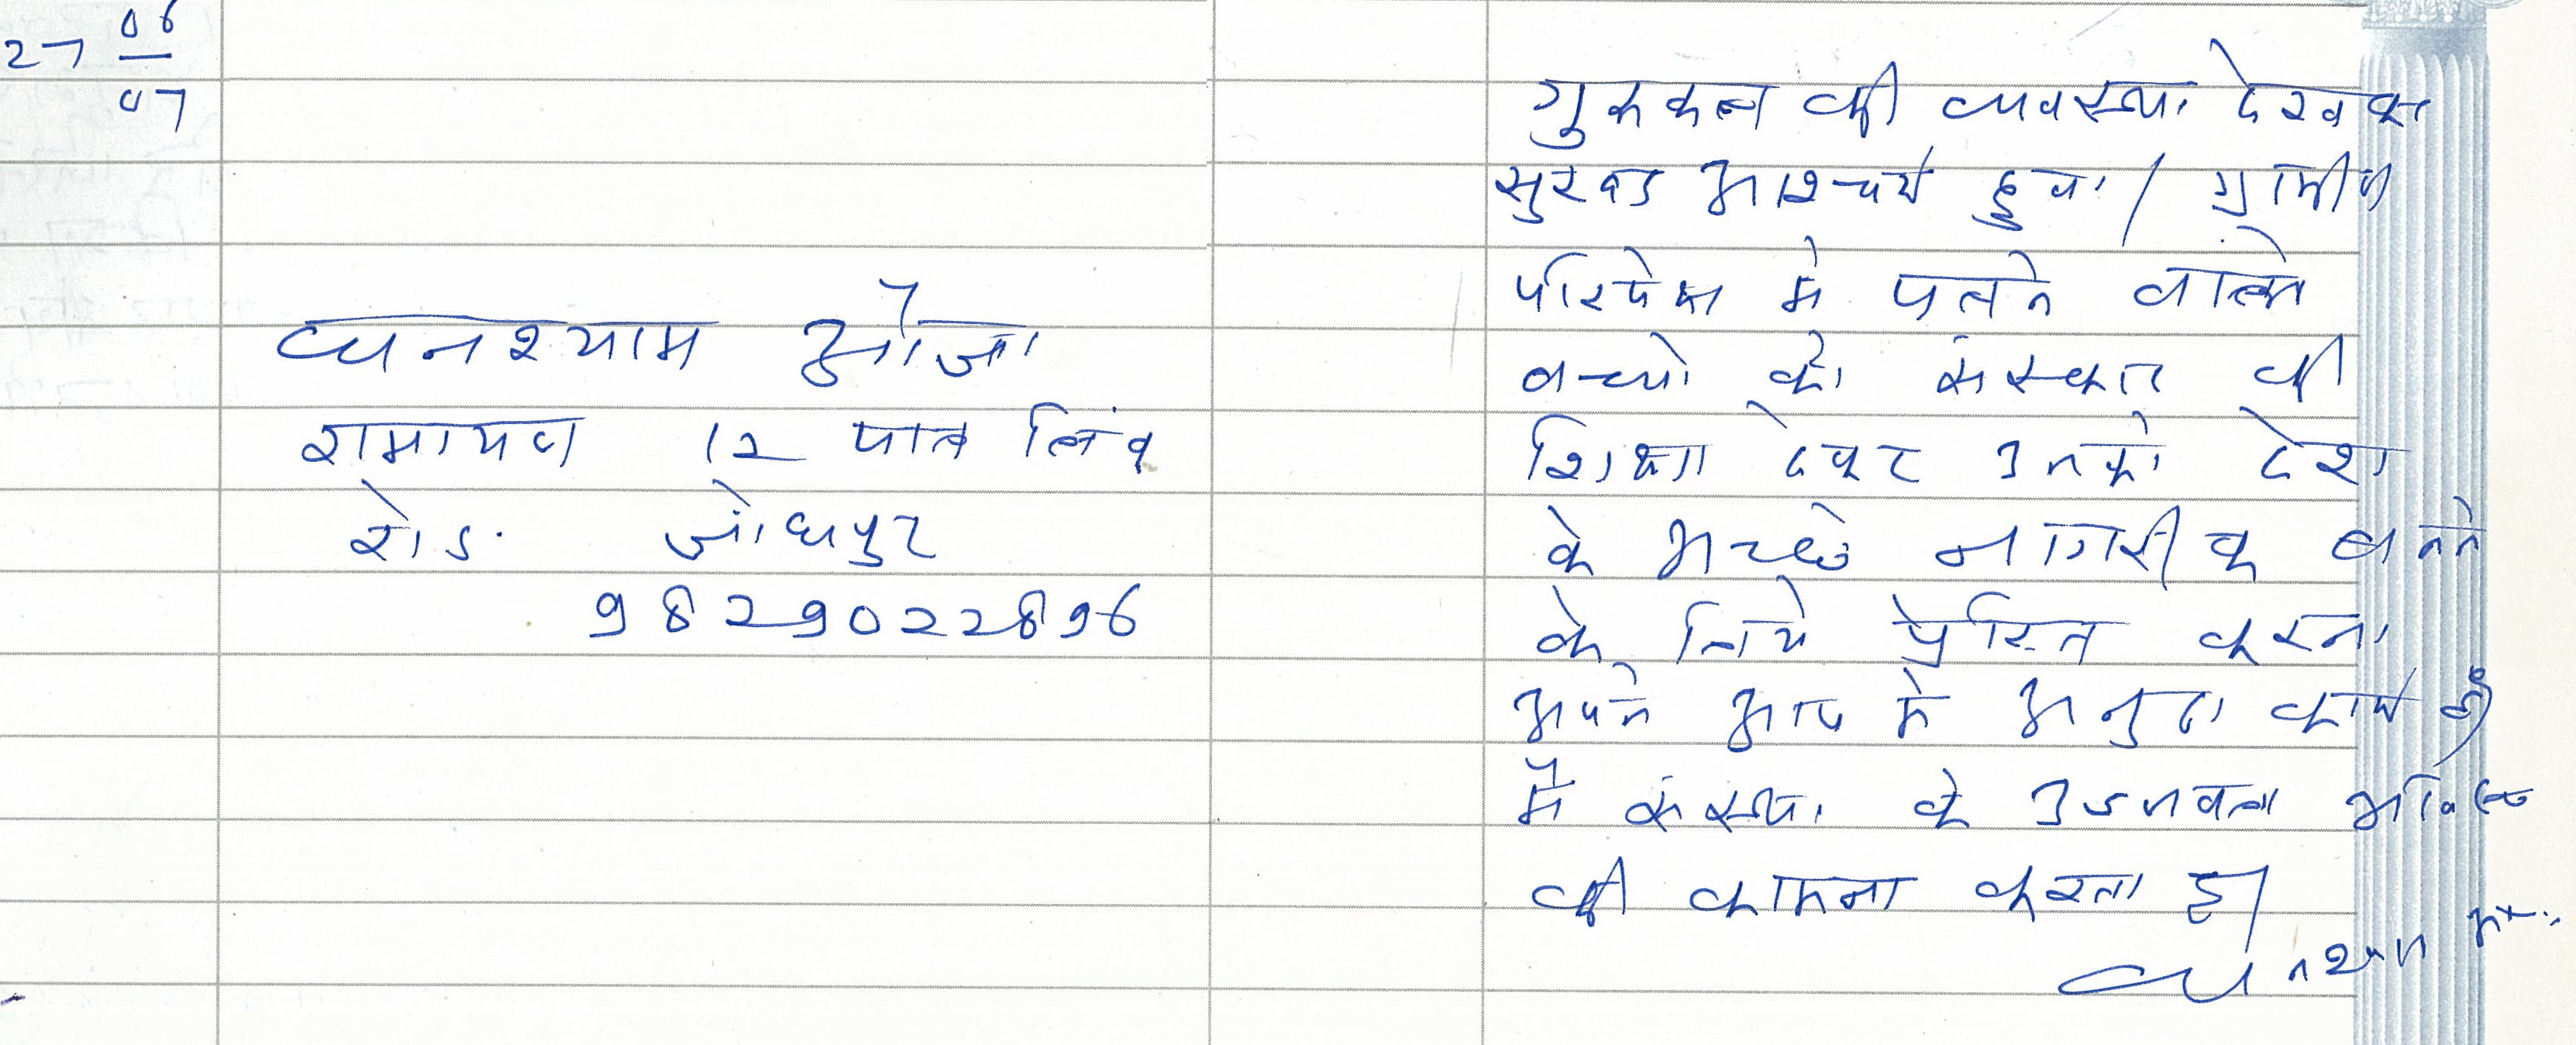 27 06
07
घनश्याम ओझा
रामायण 12 पाल लिंक
रोड. जोधपुर
9829022896
गुरुकुल की व्यवस्था देखकर
सुखद आश्चर्य हुवा / ग्रामीण
परिपेक्ष मे पलने वाले
बच्चो को संस्कार की
शिक्षा देकर उनको देश
के अच्छे नागरीक बनने
के लिये प्रेरित करना
अपने आप मे अनुठा कार्य है
मैं संस्था के उज्जवल भविष्य
की कामना करता हू
घनश्याम